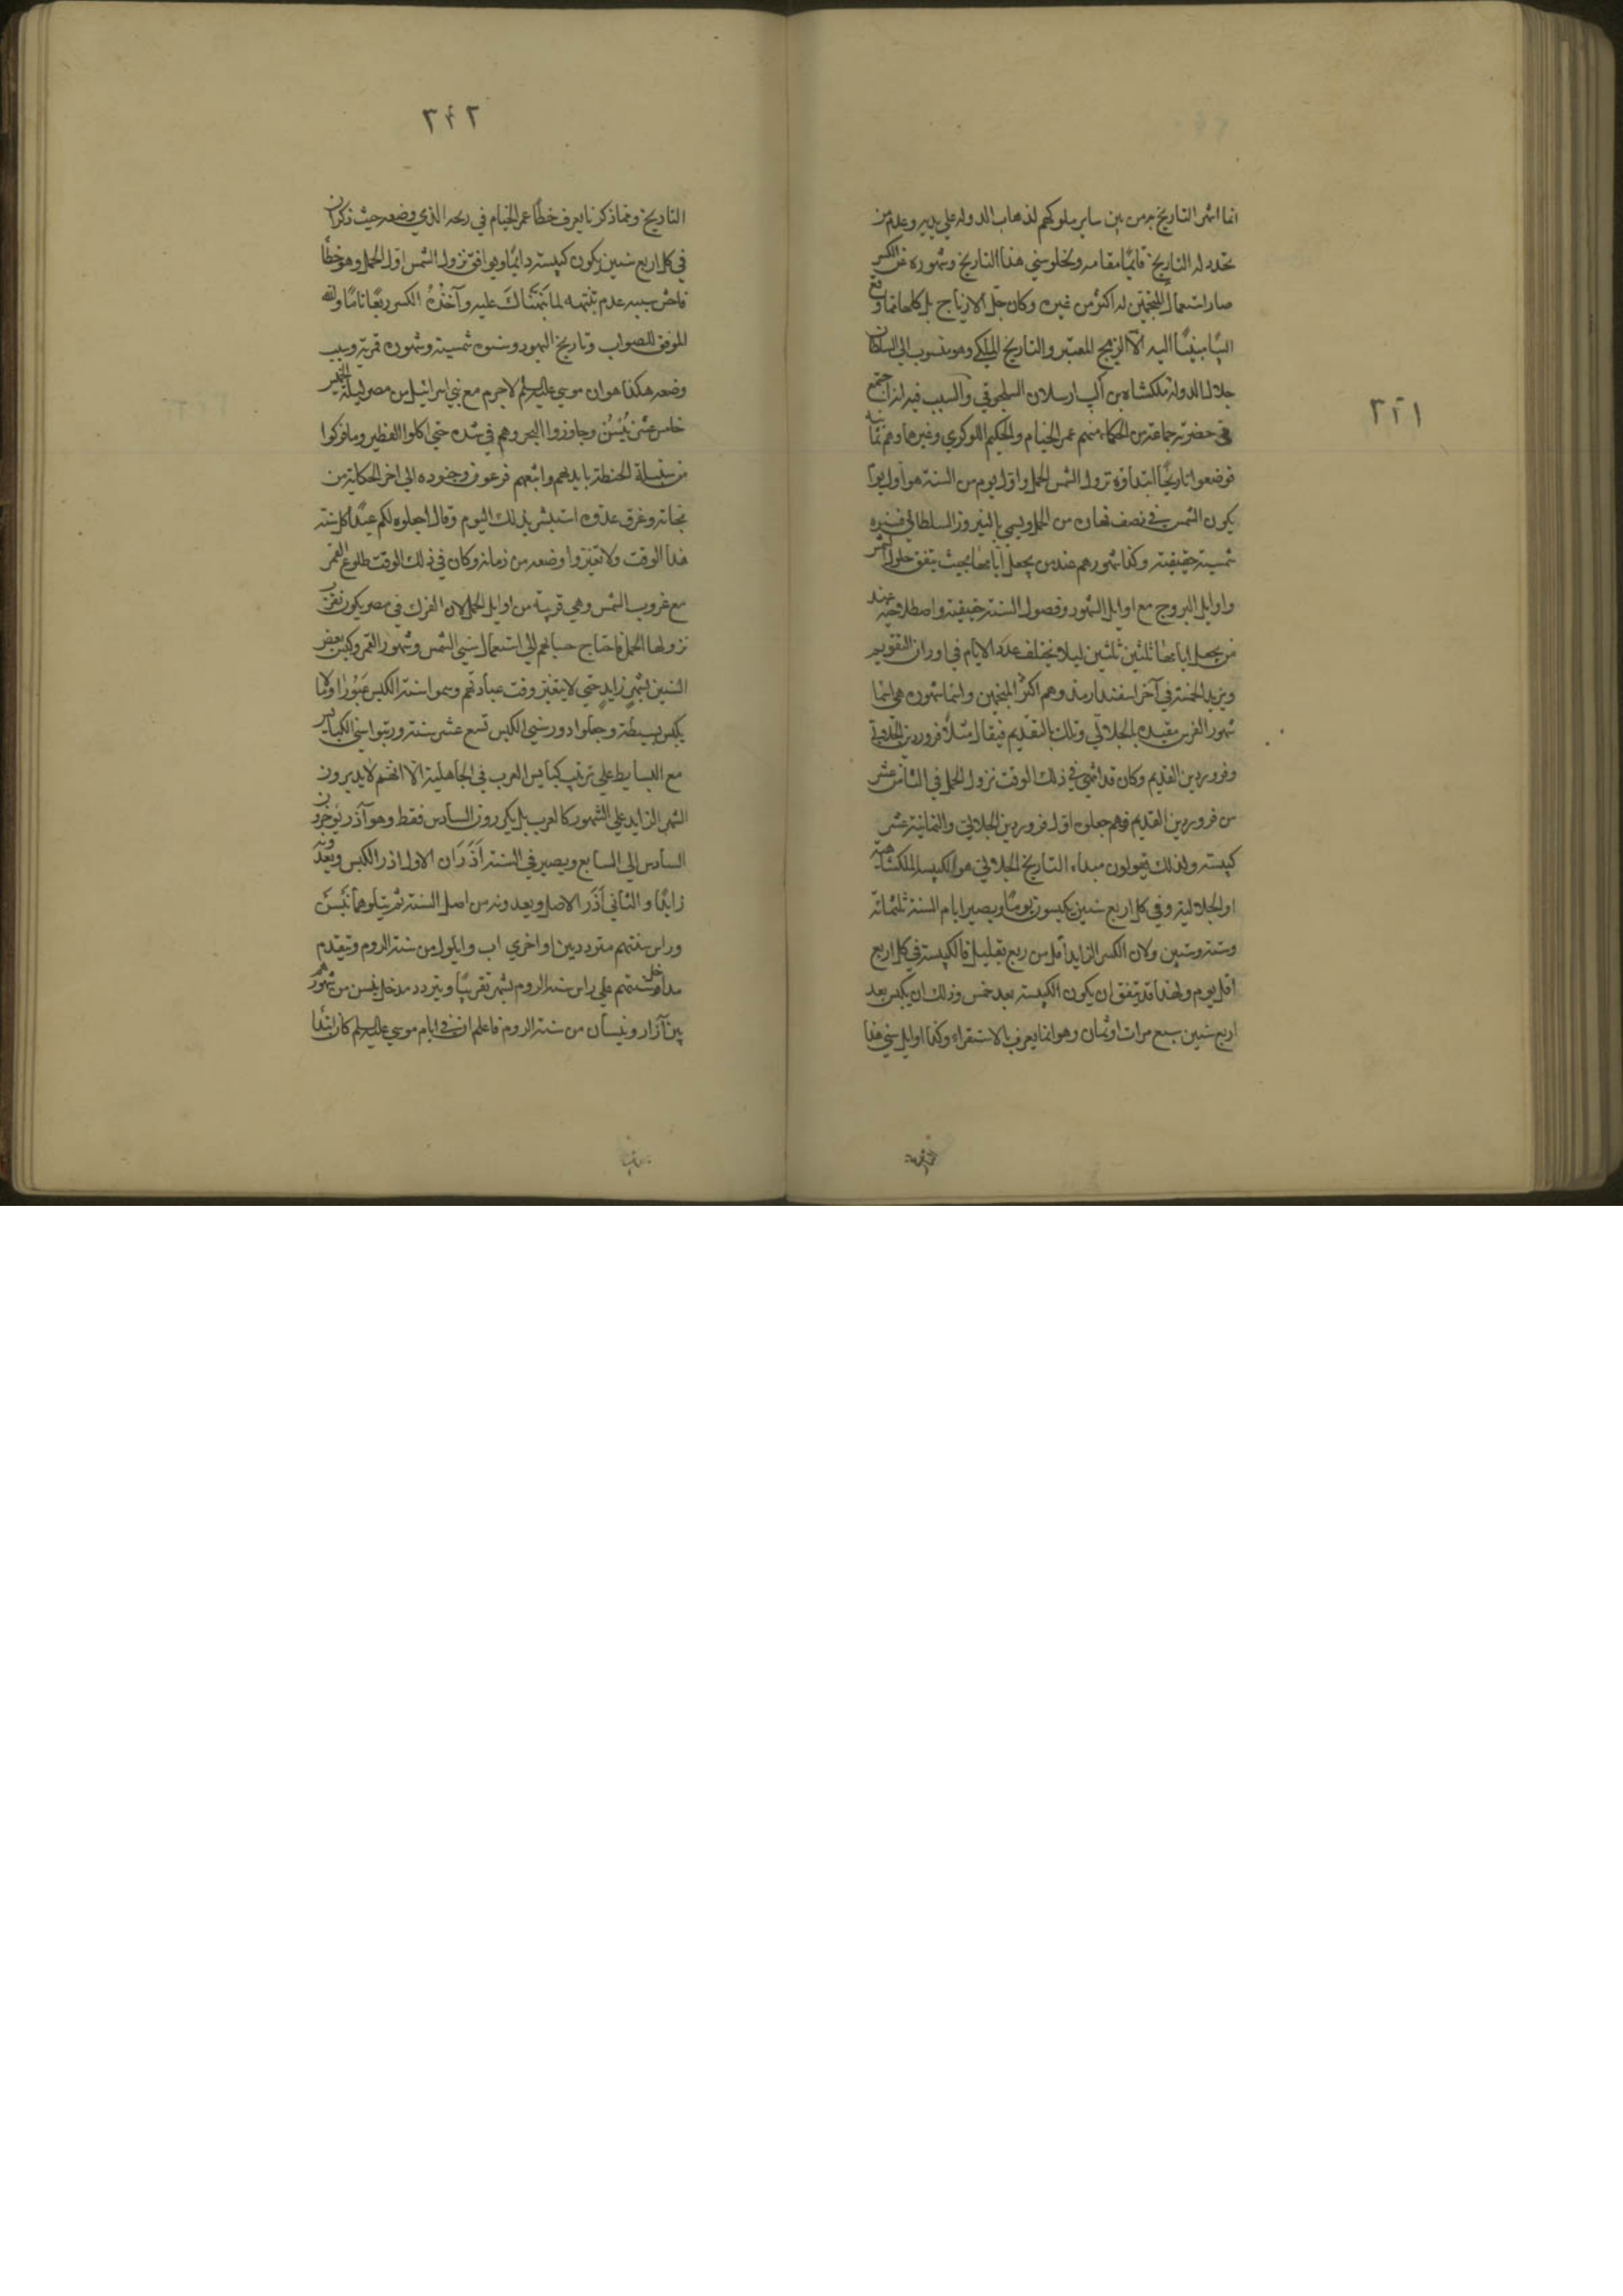 ٣٤١
انما اشهر التاريخ به من بين ساير ملوكهم لذهاب الدولة على يديه وعدم من
تجدد له التاريخ قايمًا مقامه ولخلو سني هذا التاريخ وشهوره عن الكسر
صار استعمال المنجمين له اكثر من غيره وكان جل الازياج بل كلها مما وقع
الينا مبنيًا اليه الا الزيج المعتبر والتاريخ الملكي وهو منسوب الى السلطان
جلال الدولة ملكشاه بن الب ارسلان السلجوقي والسبب فيه انه اجتمع
في حضرته جماعة من الحكماء منهم عمر الخيام والحكيم اللوكري وغيرها وهم ثمانية
فوضعوا تاريخًا ابتداؤه نزول الشمس الحمل واول يوم من السنة هو اول يوم
يكون الشمس في نصف نهاره من الحمل ويسمي بالنيروز السلطاني فسنيه
شمسية حقيقية وكذا شهورهم عند من يجعل ايامها بحيث يتفق حلول الشمس
واوايل البروج مع اوايل الشهور وفصول السنة حقيقية واصطلاحية عند
من يجعل ايامها ثلثين ثلثين ليلا يختلف عدد الايام في اوراق التقويم
ويزيد الخمسة في آخر اسفندارمذ وهم اكثر المنجمين واسما شهوره هي اسما
شهور الفرس مقيدة بالجلالي وتلك بالقديم فيقال مثلًا فروردين الجلالي
وفروردين القديم وكان قد اتفق في ذلك الوقت نزول الحمل في الثامن عشر
من فروردين القديم فهم جعلوه اول فروردين الجلالي والثمانية عشر
كبيسة ولذلك يقولون مبداء التاريخ الجلالي هو الكبيسة الملكشاهية
او الجلالية وفي كل اربع سنين يكبسون يومًا ويصير ايام السنة ثلثمائة
وستة وستين ولان الكسر الزايد اقل من ربع بقليل فالكبيسة في كل اربع
اقل يوم ولهذا قد يتفق ان يكون الكبيسة بعد خمس وذلك ان يكبس بعد
اربع سنين سبع مرات او ثمان وهو انما يعرف بالاستقراء وكذا اوايل سني هذا
٣٤٢
التاريخ ومما ذكرنا يعرف خطأ عمر الخيام في زيجه الذي وضعه حيث ذكر ان
في كل اربع سنين يكون كبيسة دايمًا ويوافق نزول الشمس اول الحمل وهو خطأ
فاحش سببه عدم تنبهه لما نبهناك عليه وآخذه الكسر ربعًا تامًا والله
الموفق للصواب وتاريخ اليهود وسنوه شمسية وشهوره قمرية وسبب
وضعه هكذا هو ان موسى عليه السلم لاجرم مع بني اسرائيل من مصر ليلة الخميس
خامس عشر نيسن وجاوزوا البحر وهم في شدة حتى اكلوا الفطير وما فركوا
من سنبلة الحنطة بايديهم واتبعهم فرعون وجنوده الى اخر الحكاية من
نجاته وغرق عدوه استبشر بذلك اليوم وقال اجعلوه لكم عيدًا كل سنة
هذا الوقت ولا تغيروا وضعه من زمانه وكان في ذلك الوقت طلوع القمر
مع غروب الشمس وهي قريبة من اوايل الحمل لان الفرك في مصر يكون بقرب
نزولها الحمل فاحتاج حسابهم الى استعمال سني الشمس وشهور القمر وكبس بعض
السنين بشهر زايد حتى لا يتغير وقت عيادتهم وسموا سنة الكبس عبورًا وما لا
يكبس بسيطة وجعلوا دور سني الكبس تسع عشر سنة ورتبوا سني الكبايس
مع البسايط على ترتيب كبايس العرب في الجاهلية الا انهم لا يديرون
الشهر الزايد على الشهور كالعرب بل يكررون السادس فقط وهو آذر
السادس الى السابع ويصير في السنة اذران الاول اذر الكبس ويعدونه
زايدًا والثاني اذر الاصل ويعدونه من اصل السنة ثم يتلوهما نيسن
وراس سنتهم متردد بين اواخر اب وايلول من سنة الروم ويتقدم
مداخل سنتهم على راس سنة الروم بشهر تقريبًا ويتردد مدخل نيسن من شهورهم
بين آزار ونيسان من سنة الروم فاعلم ان في ايام موسى عليه السلم كان ابتدا